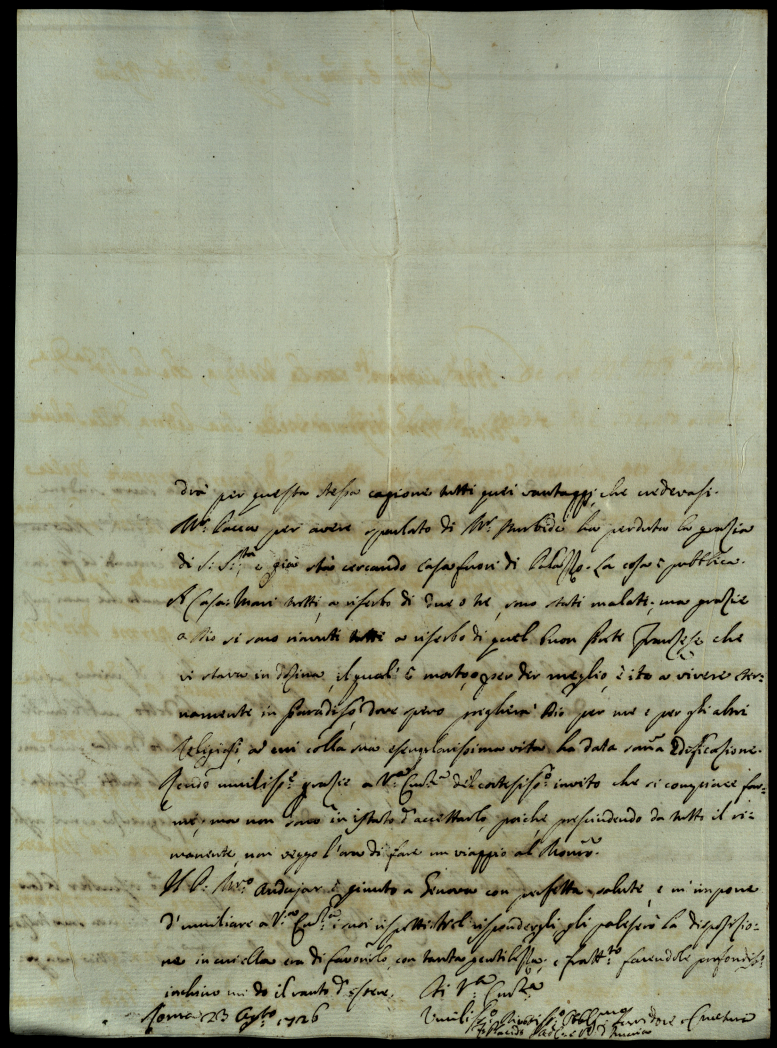 drà per questa stessa cagione tutti quei vantaggj che credevasi.
Mr. Lacca per avere sparlato di Mr. ha perduto la grazia
di S. Stà e già stà cercando Casa fuori di Palazzo. La cosa è pubblica.
A Casa Mari tutti, a riserbo di due o tre, sono stati malati; ma grazie
a Dio si sono riavuti tutti a riserbo di quel buon Prete Franzese che
vi stava in Dozina, il quale è morto, o per dir meglio, è ito a vivere eter-
namente in Paradiso, dove spero pregherà Dio per me e per gli altri
Religiosi, a cui colla sua esemplarissima vita ha data somma Edificazione.
Rendo umiliss.e grazie a V.ra Em.za del cortesiss.o invito che si compiace far-
mi, ma non sono in istato d'accettarlo, poiche prescindendo da tutto il ri-
manente, non veggo l'ora di fare un viaggio al
Il P. Mro. Andujar è giunto a Genova con perfetta salute, e m'impone
d'umiliare a V.ra Em.za i suoi rispetti. Nel rispondergli gli paleserò la disposizio-
ne in cui ella era di favorirlo con tanta gentilezza, e fratt.to facendole profondiss.o
inchino mi do il vanto d'essere. Di V.ra Em.za
Roma 23 Agto 1726 Umiliss.o Divotiss.o Obblig.mo Servidore e Creatura